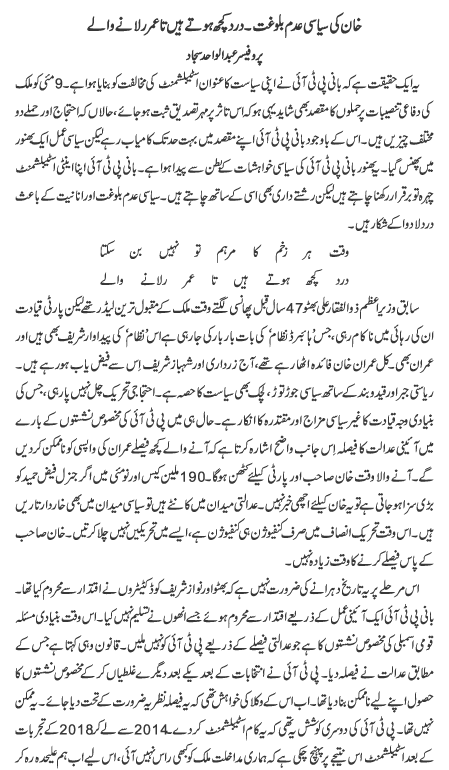 خان کی سیاسی عدم بلوغت ۔ درد کچھ ہوتے ہیں تا عمر رلانے والے
پروفیسر عبدالواحد سجاد
یہ ایک حقیقت ہے کہ بانی پی ٹی آئی نے اپنی سیاست کا عنوان اسٹیبلشمنٹ کی مخالفت کو بنایا ہوا ہے۔ 9مئی کو ملک
کی دفاعی تنصیبات پر حملوں کا مقصد بھی شاید یہی ہو کہ اس تاثر پر مہر تصدیق ثبت ہو جائے، حالاں کہ احتجاج اور حملے دو
مختلف چیزیں ہیں۔ اس کے باوجود بانی پی ٹی آئی اپنے مقصد میں بہت حد تک کامیاب رہے لیکن سیاسی عمل ایک بھنور
میں پھنس گیا۔ یہ بھنور بانی پی ٹی آئی کی سیاسی خواہشات کے بطن سے پیدا ہوا ہے۔ بانی پی ٹی آئی اپنا اینٹی اسٹیبلشمنٹ
چہرہ تو برقرار رکھنا چاہتے ہیں لیکن رشتے داری بھی اسی کے ساتھ چاہتے ہیں۔ سیاسی عدم بلوغت اور انانیت کے باعث
درد لا دوا کے شکار ہیں۔
وقت ہر زخم کا مرہم تو نہیں بن سکتا
درد کچھ ہوتے ہیں تا عمر رلانے والے
سابق وزیراعظم ذوالفقار علی بھٹو 47 سال قبل پھانسی لگتے وقت ملک کے مقبول ترین لیڈر تھے لیکن پارٹی قیادت
ان کی رہائی میں ناکام رہی، جس 'ہائبرڈ نظام' کی بات بار بار کی جا رہی ہے اس 'نظام' کی پیداوار شریف بھی ہیں اور
عمران بھی۔ کل عمران خان فائدہ اٹھا رہے تھے، آج زرداری اور شہباز شریف اِس سے فیض یاب ہو رہے ہیں۔
ریاستی جبر اور قید و بند کے ساتھ سیاسی جوڑ توڑ، لچک بھی سیاست کا حصہ ہے۔ احتجاجی تحریک چل نہیں پا رہی، جس کی
بنیادی وجہ قیادت کا غیر سیاسی مزاج اور مقتدرہ کا انکار ہے۔ حال ہی میں پی ٹی آئی کی مخصوص نشستوں کے بارے
میں آئینی عدالت کا فیصلہ اِس جانب واضح اشارہ کرتا ہے کہ آنے والے کچھ فیصلے عمران کی واپسی کو ناممکن کر دیں
گے۔ آنے والا وقت خان صاحب اور پارٹی کیلئے کٹھن ہوگا۔ 190 ملین کیس اور نو مئی میں اگر جنرل فیض حمید کو
بڑی سزا ہو جاتی ہے تو یہ خان کیلئے اچھی خبر نہیں۔ عدالتی میدان میں کانٹے ہیں تو سیاسی میدان میں بھی خاردار تاریں
ہیں۔ اس وقت تحریک انصاف میں صرف کنفیوژن ہی کنفیوژن ہے، ایسے میں تحریکیں نہیں چلا کرتیں۔ خان صاحب
کے پاس فیصلے کرنے کا وقت زیادہ نہیں۔
اس مرحلے پر یہ تاریخ دہرانے کی ضرورت نہیں ہے کہ بھٹو اور نواز شریف کو ڈکٹیٹروں نے اقتدار سے محروم کیا تھا۔
بانی پی ٹی آئی ایک آئینی عمل کے ذریعے اقتدار سے محروم ہوئے جسے انھوں نے تسلیم نہیں کیا۔ اس وقت بنیادی مسئلہ
قومی اسمبلی کی مخصوص نشستوں کا ہے جو عدالتی فیصلے کے ذریعے پی ٹی آئی کو نہیں ملیں۔ قانون وہی کہتا ہے جس کے
مطابق عدالت نے فیصلہ دیا۔ پی ٹی آئی نے انتخابات کے بعد یکے بعد دیگرے غلطیاں کر کے مخصوص نشستوں کا
حصول اپنے لیے ناممکن بنا دیا تھا۔ اب اس کے وکلا کی خواہش تھی کہ یہ فیصلہ نظریہ ضرورت کے تحت دیا جائے۔ یہ ممکن
نہیں تھا۔ پی ٹی آئی کی دوسری کوشش یہ تھی کہ یہ کام اسٹیبلشمنٹ کر دے۔ 2014 سے لے کر 2018 کے تجربات کے
بعد اسٹیبلشمنٹ اس نتیجے پر پہنچ چکی ہے کہ ہماری مداخلت ملک کو کبھی راس نہیں آئی، اس لیے اب ہم علیحدہ رہ کر